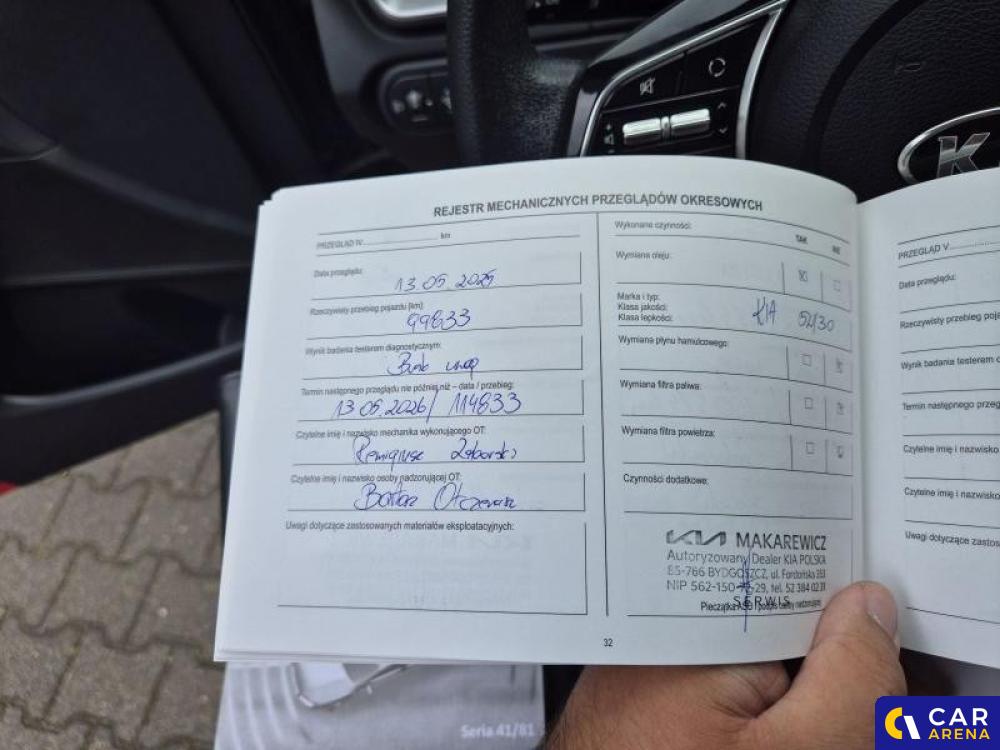 REJESTR MECHANICZNYCH PRZEGLĄDÓW OKRESOWYCH
PRZEGLĄD IV.................................. km
Data przeglądu:
13.05.2025
Rzeczywisty przebieg pojazdu [km]:
99833
Wynik badania testerem diagnostycznym:
Brak uwag
Termin następnego przeglądu nie później niż – data / przebieg:
13.05.2026 / 114833
Czytelne imię i nazwisko mechanika wykonującego OT:
Remigiusz
Czytelne imię i nazwisko osoby nadzorującej OT:
Uwagi dotyczące zastosowanych materiałów eksploatacyjnych:
Wykonane czynności:
TAK NIE
Wymiana oleju:
Marka i typ:
Klasa jakości:
Klasa lepkości:
KIA 5W30
Wymiana płynu hamulcowego:
Wymiana filtra paliwa:
Wymiana filtra powietrza:
Czynności dodatkowe:
KIA MAKAREWICZ
Autoryzowany Dealer KIA POLSKA
85-766 BYDGOSZCZ, ul. Fordońska 353
NIP 562-150-72-29, tel. 52 384 02 31
SERWIS
Pieczątka ASO i podpis osoby nadzorującej
32
PRZEGLĄD V
Data przeglądu:
Rzeczywisty przebieg
Wynik badania testerem
Termin następnego
Czytelne imię i nazwisko
Czytelne imię i nazwisko
Uwagi dotyczące
Seria 41/81
CAR
ARENA